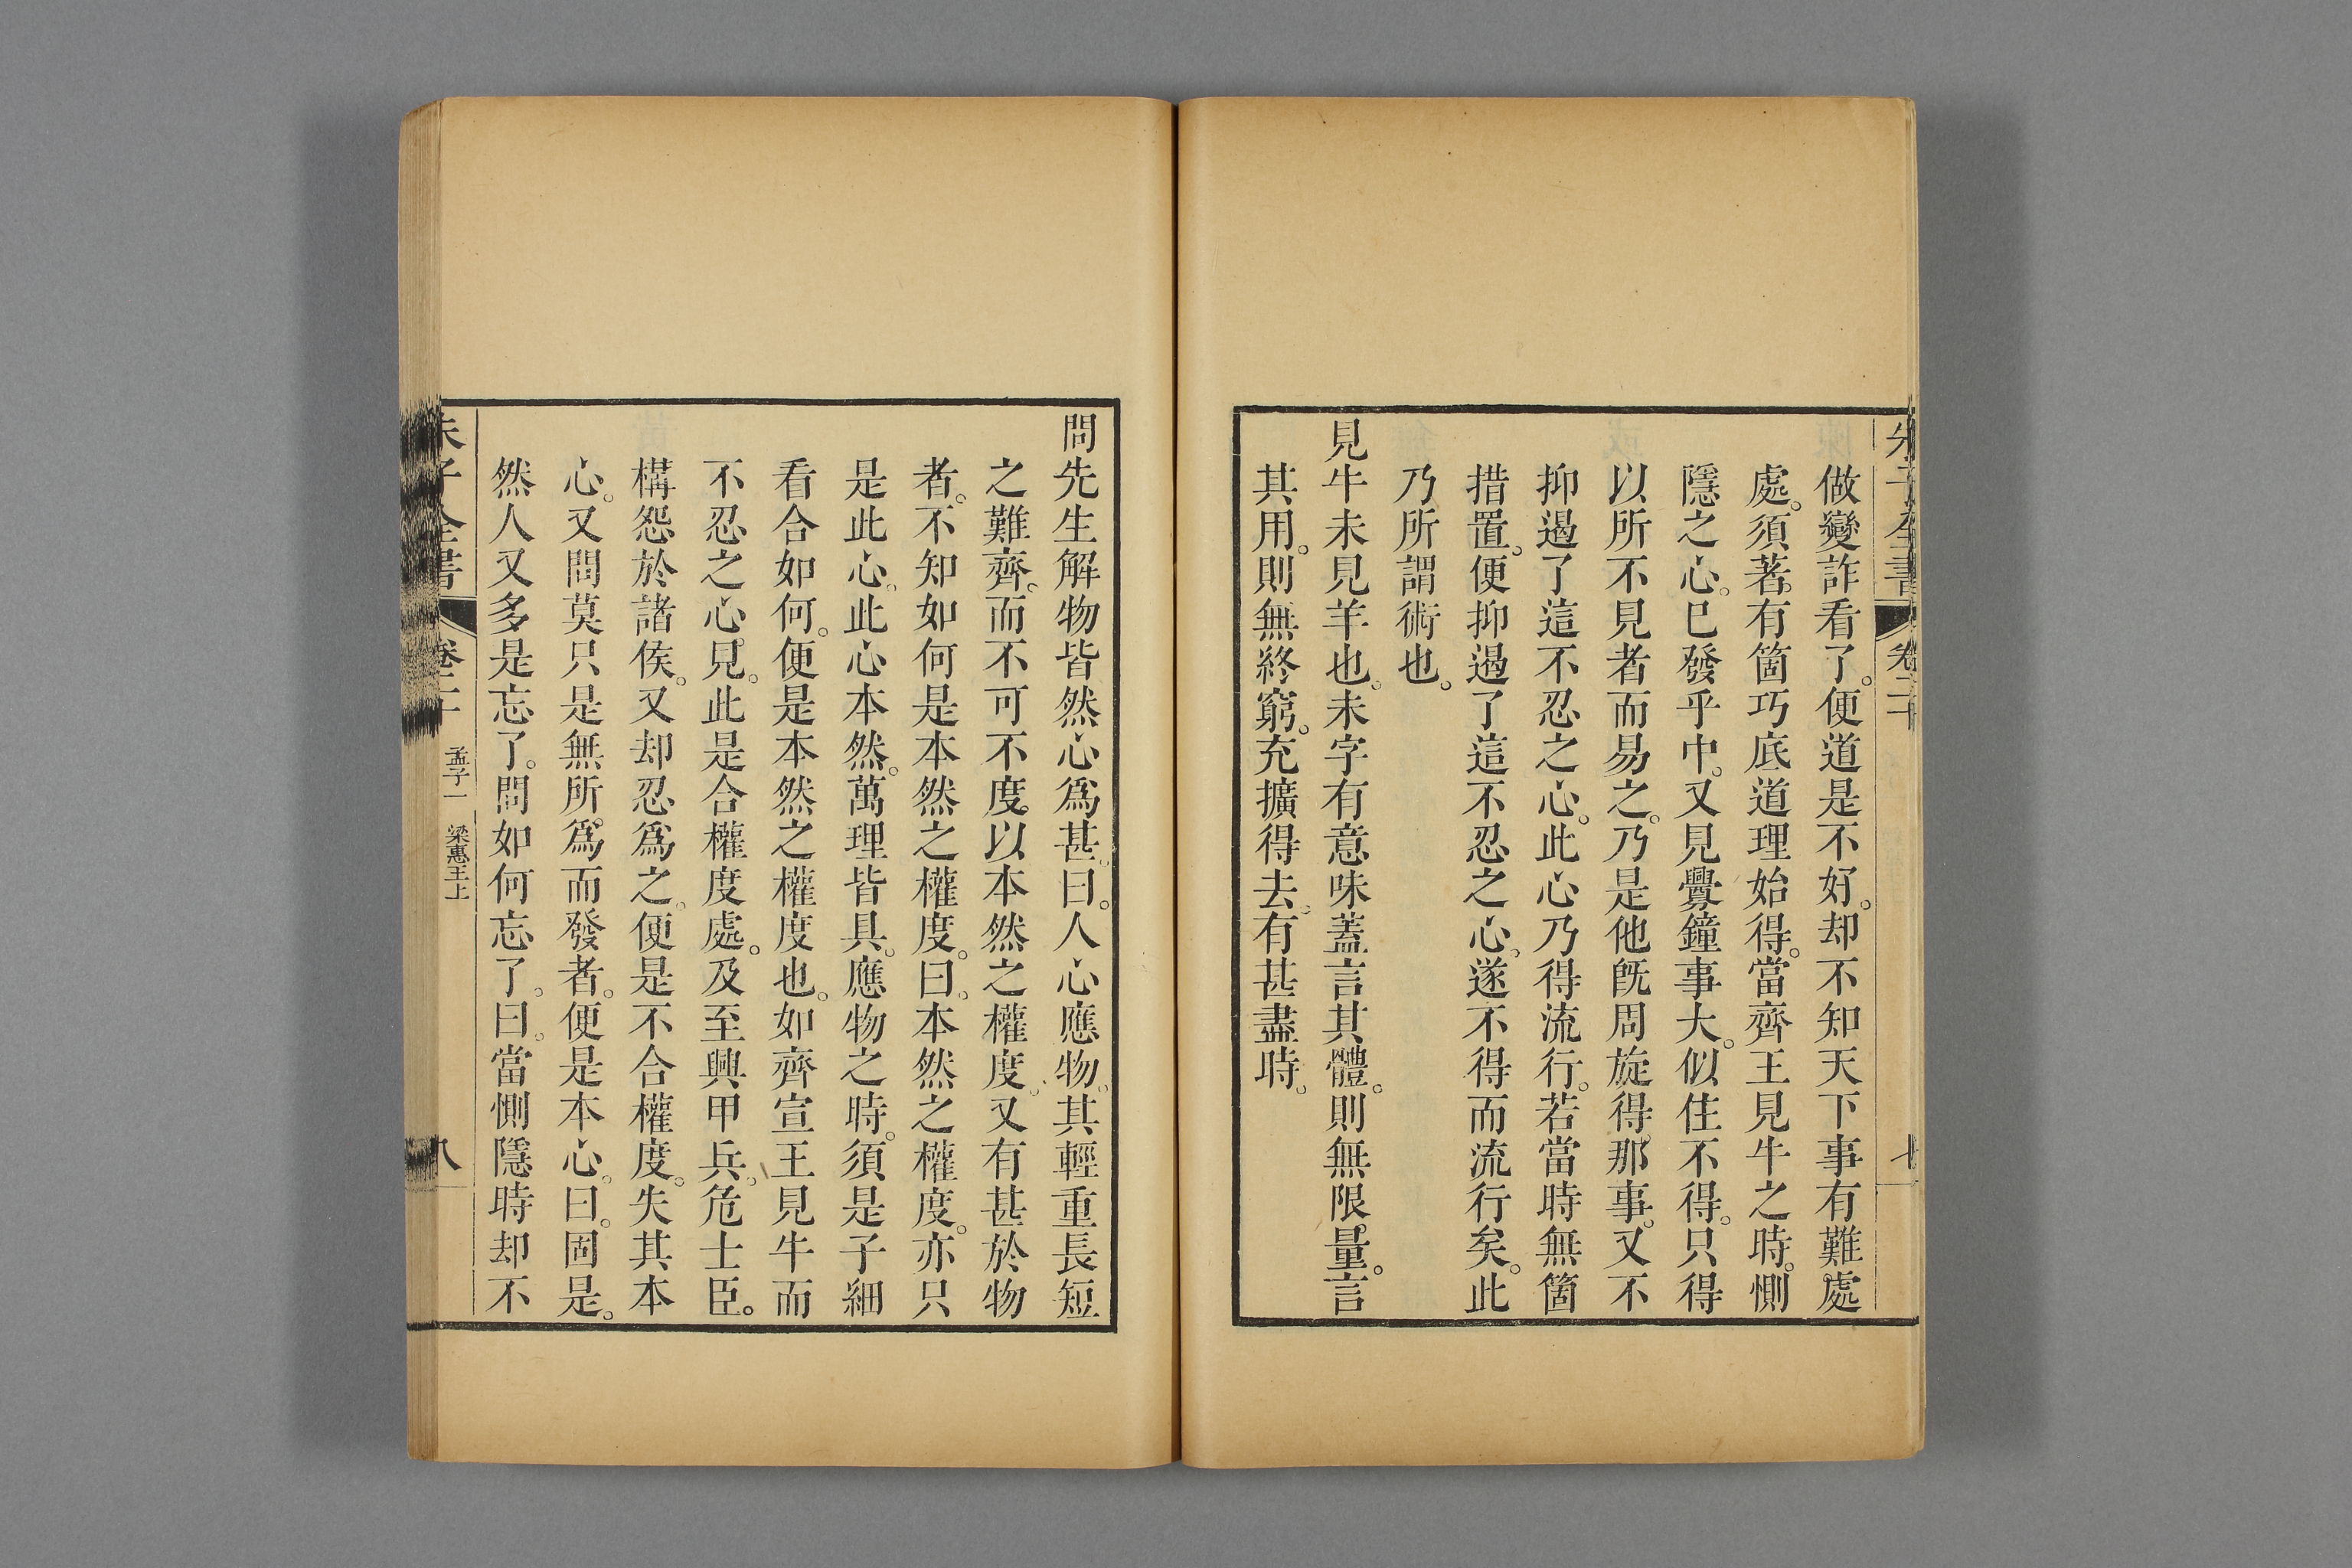 朱子全書 卷二十 七
做變詐看了。便道是不好。却不知天下事有難處
處。須著有箇巧底道理始得。當齊王見牛之時。惻
隱之心。已發乎中。又見釁鐘事大。似住不得。只得
以所不見者而易之。乃是他旣周旋得那事。又不
抑遏了這不忍之心。此心乃得流行。若當時無箇
措置。便抑遏了這不忍之心。遂不得而流行矣。此
乃所謂術也。
見牛未見羊也。未字有意味蓋言其體。則無限量。言
其用。則無終窮。充擴得去。有甚盡時。
問先生解物皆然心爲甚。曰。人心應物。其輕重長短
之難齊。而不可不度以本然之權度。又有甚於物
者。不知如何是本然之權度。曰。本然之權度。亦只
是此心。此心本然。萬理皆具。應物之時。須是子細
看合如何。便是本然之權度也。如齊宣王見牛而
不忍之心見。此是合權度處。及至興甲兵。危士臣。
構怨於諸侯。又却忍爲之。便是不合權度。失其本
心。又問莫只是無所爲而發者。便是本心。曰。固是。
然人又多是忘了。問如何忘了。曰。當惻隱時却不
朱子全書 卷二十 孟子一 梁惠王上 八